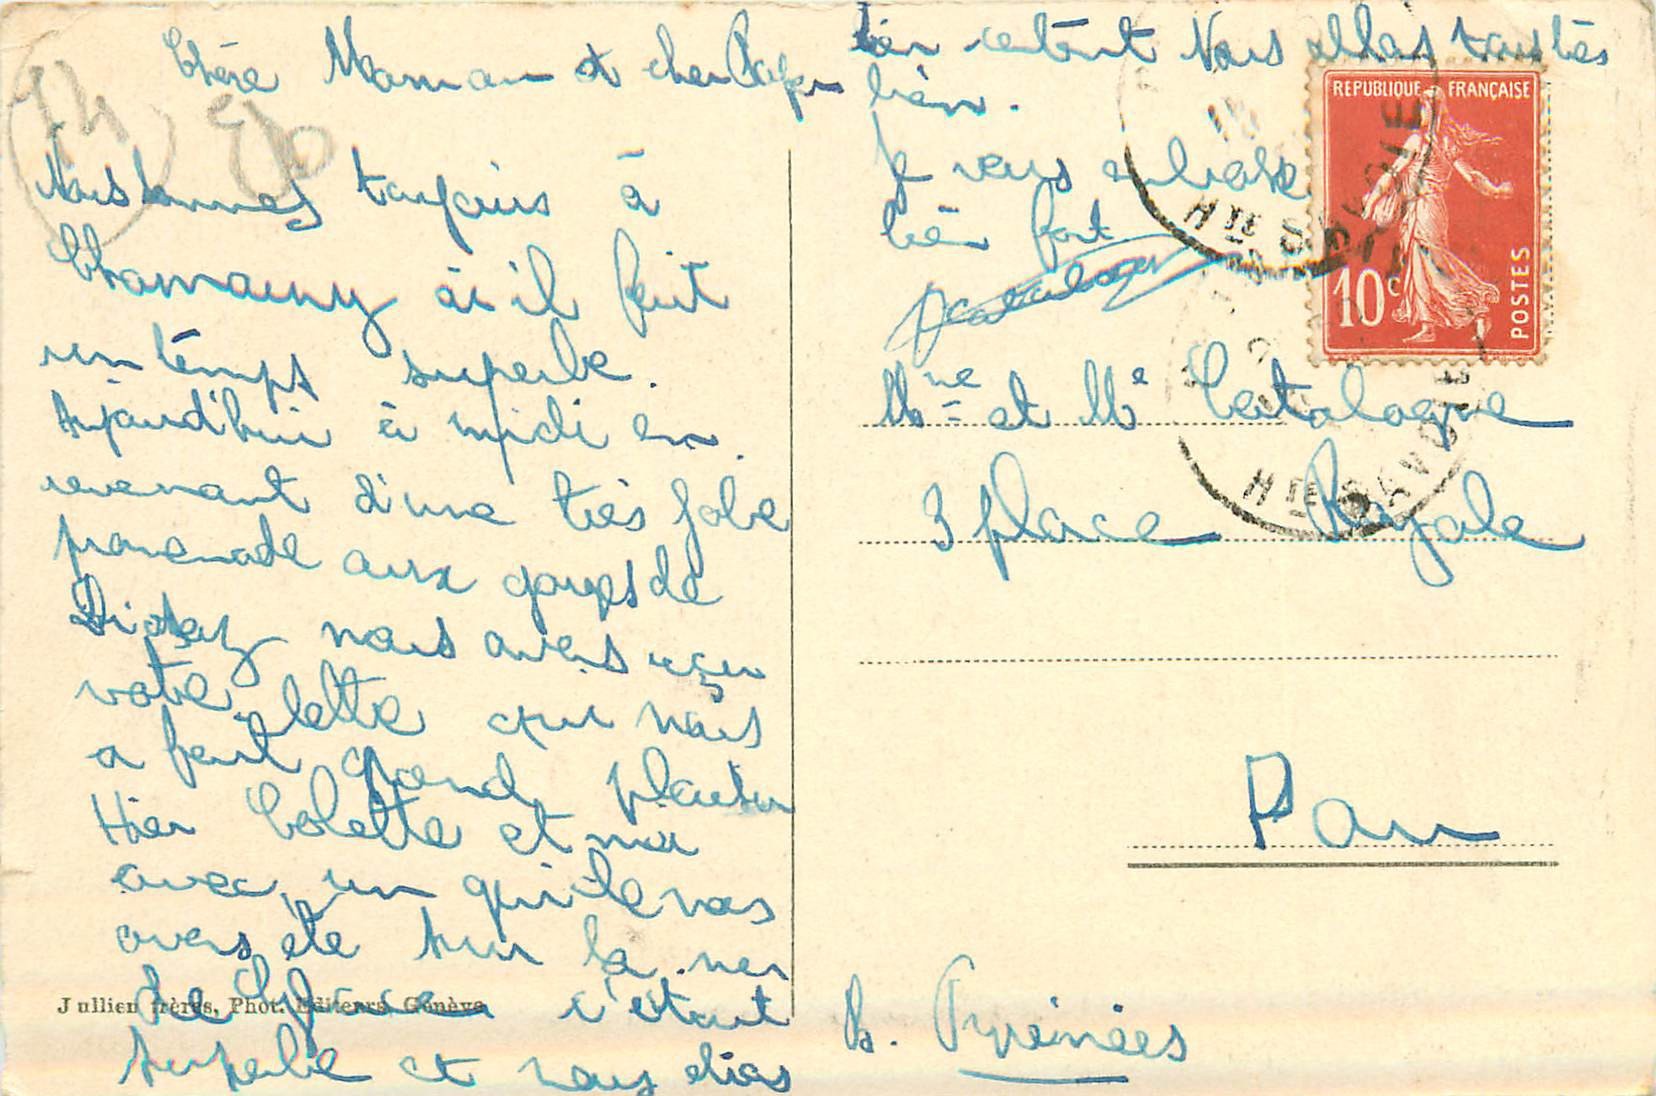 Chère Maman et cher Papa
Nous sommes toujours à
Chamauny ou il fait
un temps superbe.
Aujourd'hui à midi en
revenant d'une très jolie
promenade aux gorges de
nous avons reçu
votre lettre qui nous
a fait grand plaisir
Hier Colette et moi
avec un guide nous
avons été sur la mer
de Glace c'était
superbe et nous étions
bien contents Nous allons tous très
bien.
Je vous embrasse
bien fort
Mme et Mr Catalogne
3 place Royale
Pau
B. Pyrénées
Jullien frères, Phot. Editeurs, Genève
REPUBLIQUE FRANÇAISE
10c
POSTES
HTE SAVOIE
HTE SAVOIE